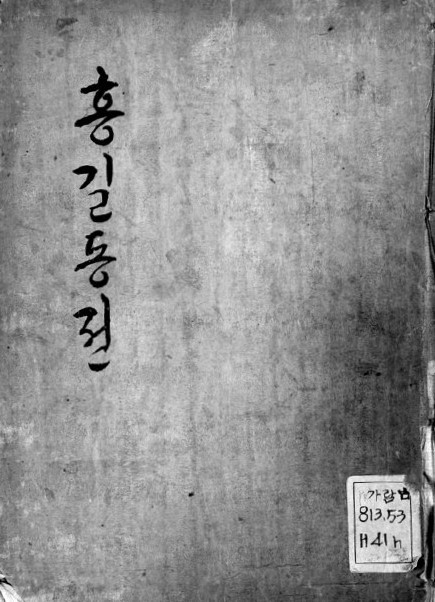 홍길동전
가람 밉
813.53
H41h